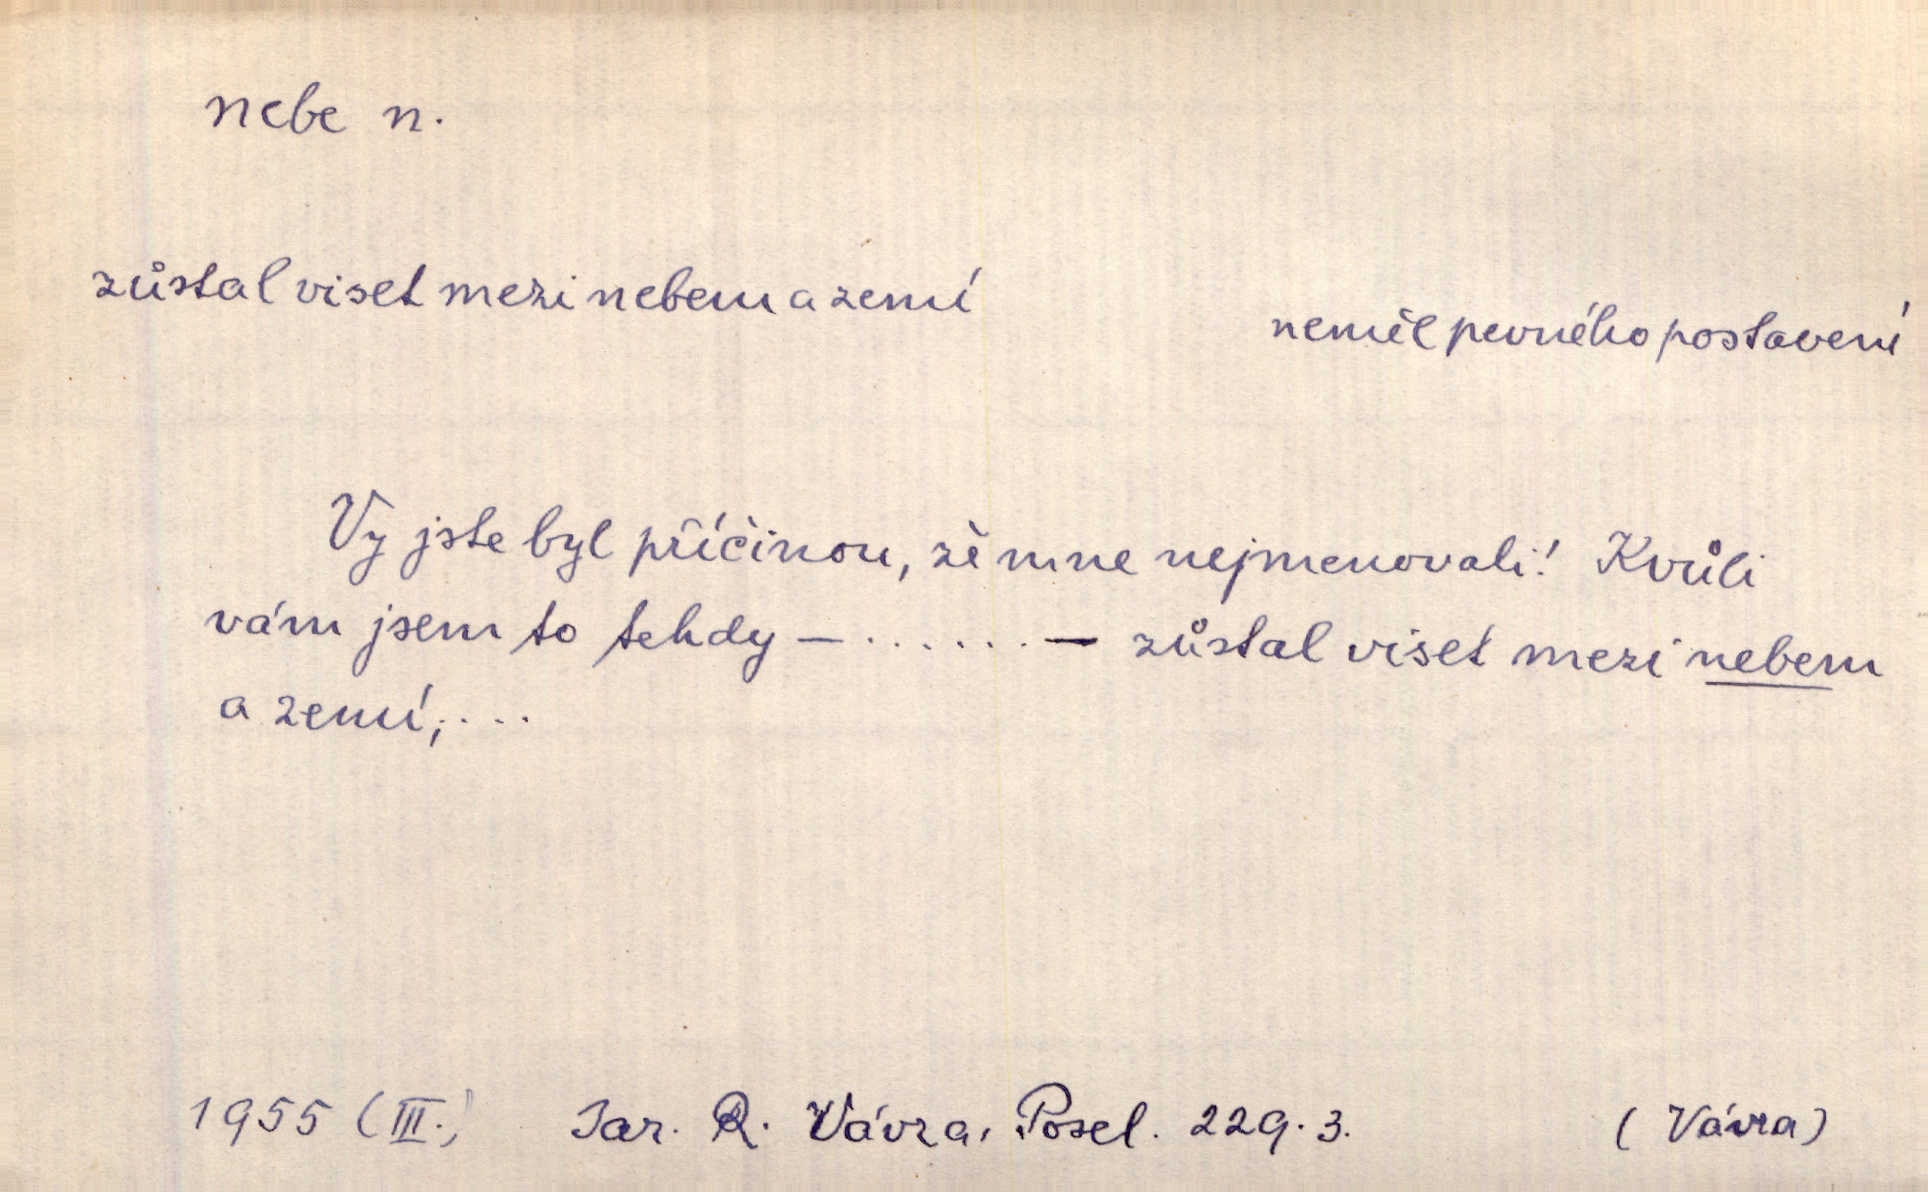 nebe n.
zůstal viset mezi nebem a zemí
neměl pevného postavení
Vy jste byl příčinou, že mne nejmenovali! Kvůli
vám jsem to tehdy – ....... – zůstal viset mezi nebem
a zemí,....
1955 (III.) Jar. R. Vávra, Posel. 229.3. (Vávra)